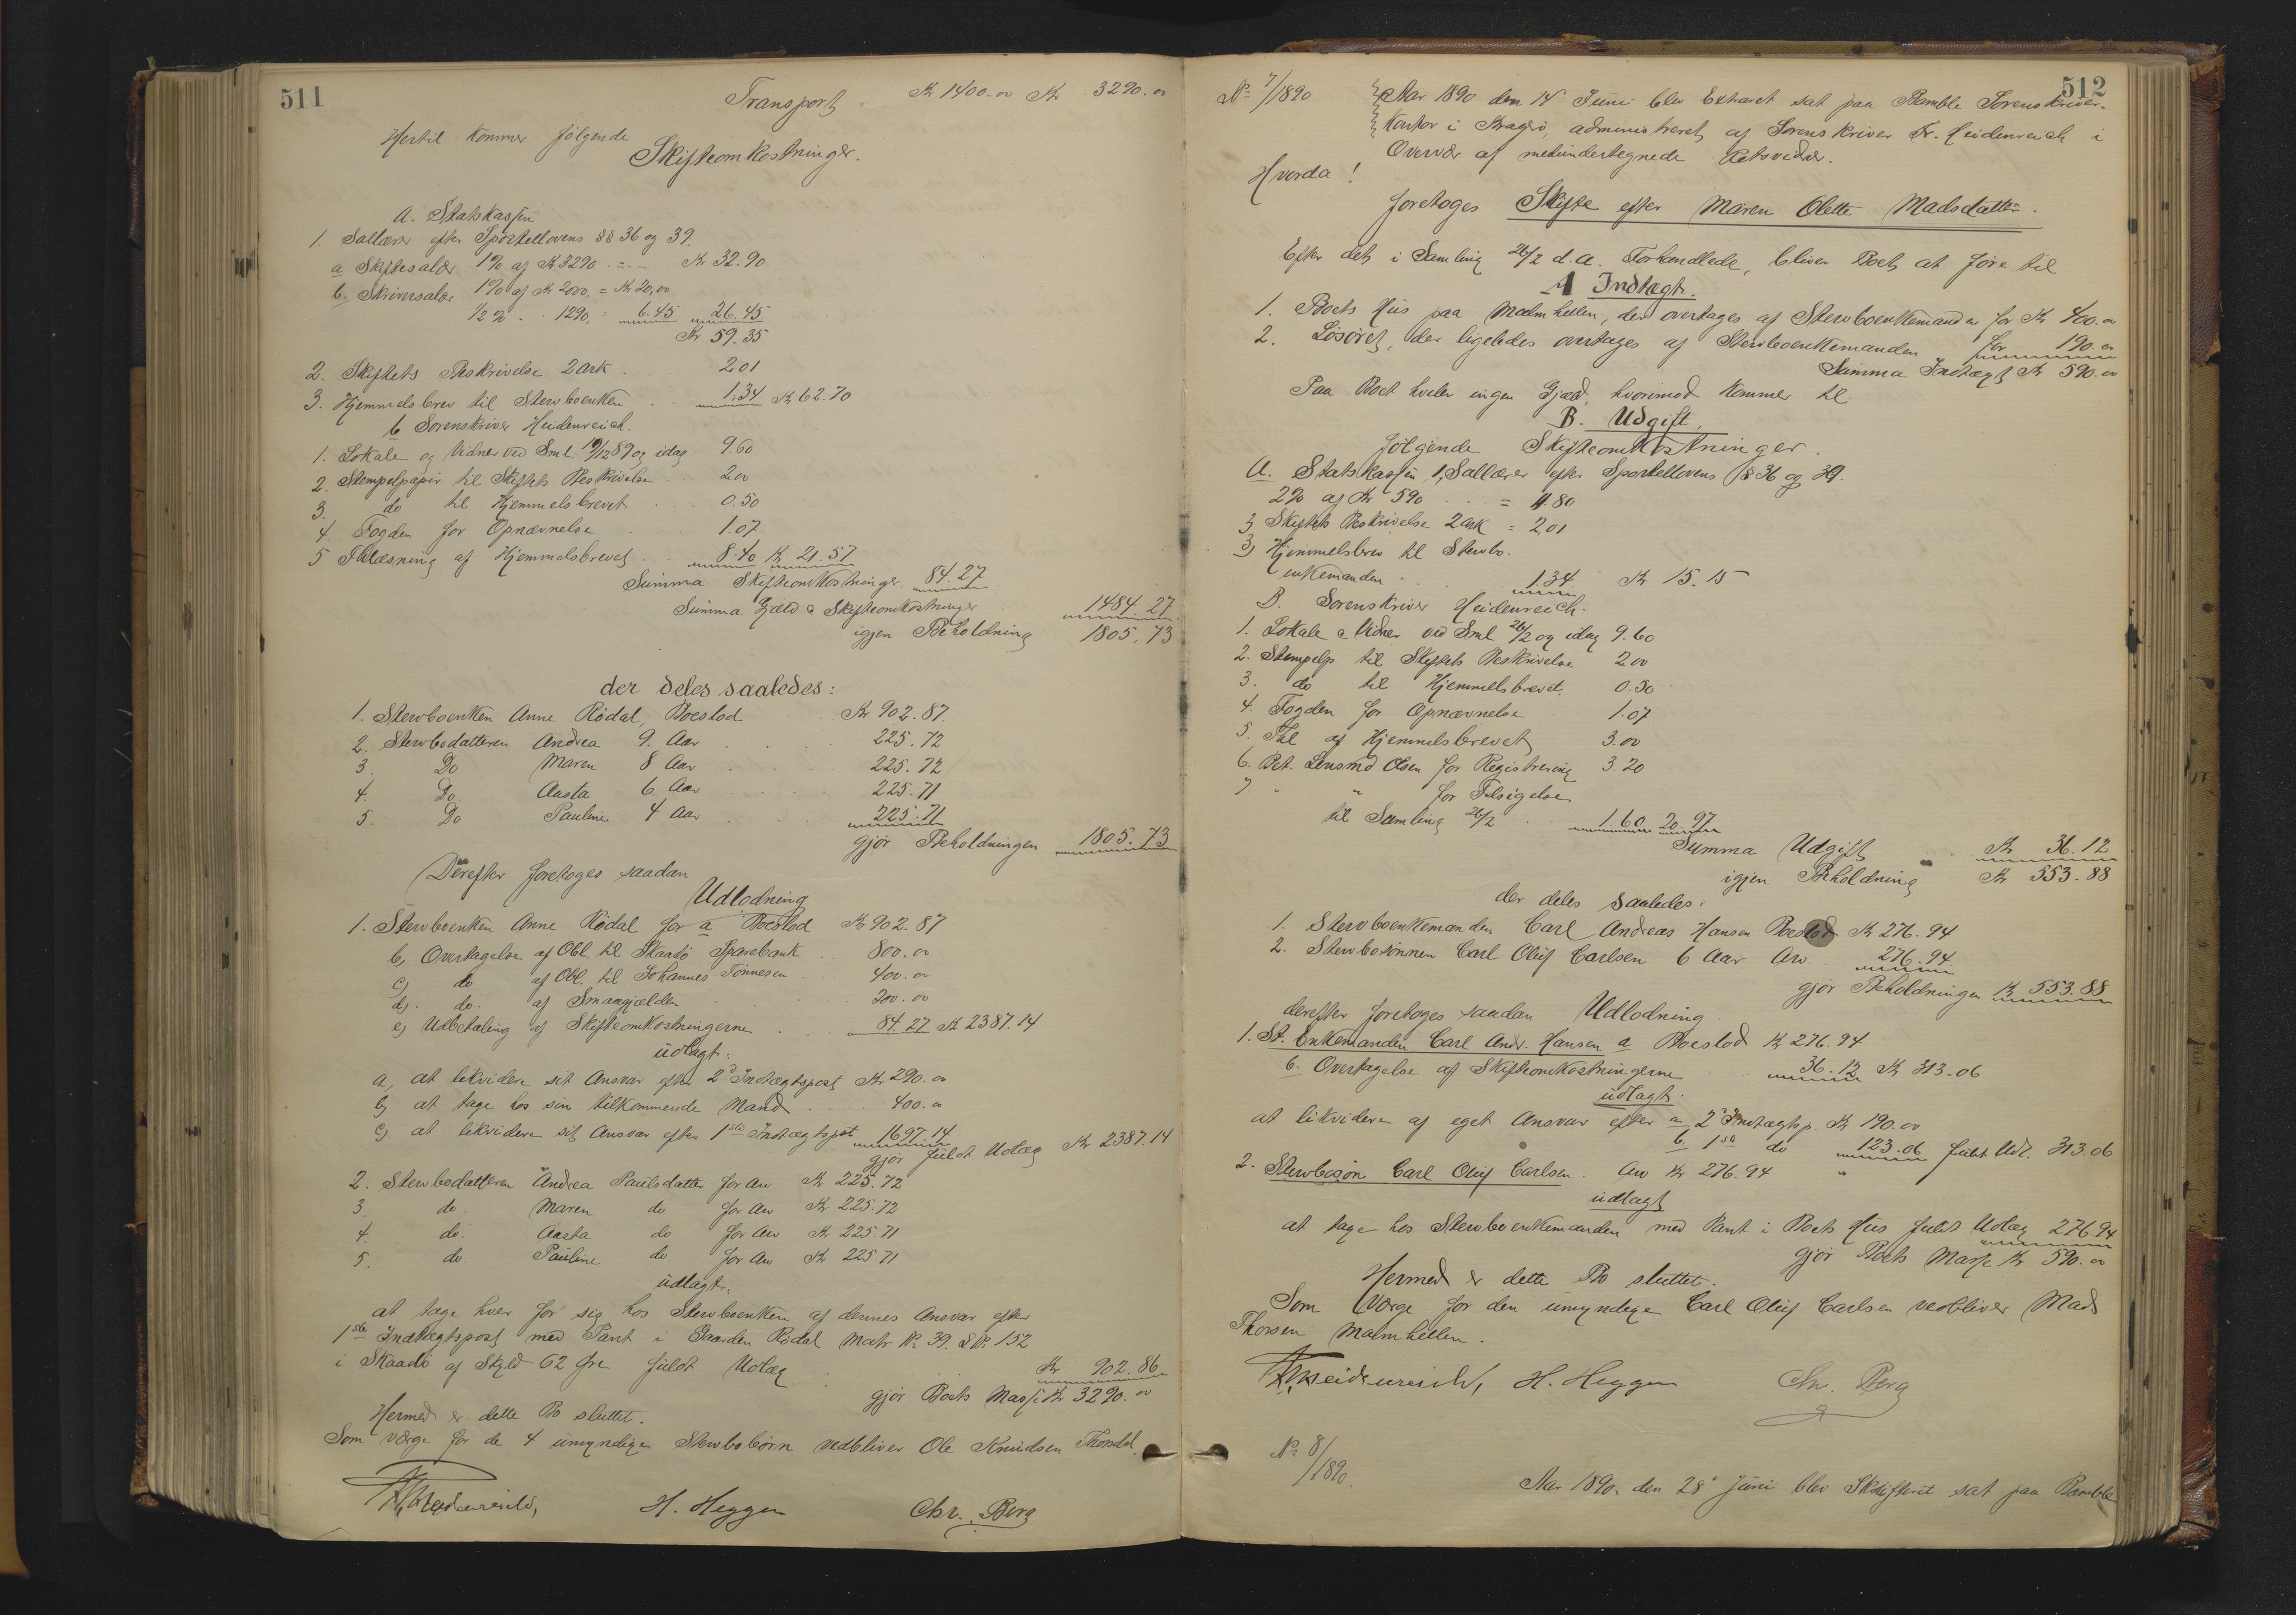 511
Transport Kr 1400.00 Kr 3290.00
Hertil kommer følgende
Skifteomkostninger.
A. Statskassen
1. Sallærer efter Sportellovens §§ 36 og 39.
a Skiftesalær 1% af Kr 3290 . = .- Kr 32.90
b. Skriversalær 1% af Kr 2000, = Kr 20,00
1/2 % . . 1290, = 6.45 26.45
Kr 59.35
2. Skiftets Beskrivelse 2 ark . 2.01
3. Hjemmelsbrev til Stervboenken . . 1.34 Kr 62.70
b Sorenskriver Heidenreich.
1. Lokale og Vidner ved Saml. 19/12 89 og idag 9.60
2. Stempelpapir til Skiftets Beskrivelse . . 2.00
3. do til Hjemmelsbrevet . 0.50
4. Fogden for Opnævnelse . . 1.07
5 Thlæsning af Hjemmelsbrevet . 8.40 Kr 21.57
Summa Skifteomkostninger 84.27
Summa Gjæld & Skifteomkostninger 1484.27
igjen Beholdning 1805.73
der deles saaledes:
1. Stervboenken Anne Rødal, Boeslod . . Kr 902.87.
2. Stervbodatteren Andrea 9. Aar . . . 225.72
3. Do Maren 8 Aar . . . 225.72
4. Do. Aasta 6 Aar . . . 225.71
5. Do Pauline 4 Aar . . . 225.71
gjør Beholdningen 1805.73
Derefter foretoges saadan
Udlodning
1. Stervboenken Anne Rødal for a Boeslod Kr 902.87
b, Overtagelse af Obl. til Skaadø Sparebank . 800.00
c) do af Obl. til Johannes Tønnesen . 400.00
d). do. af Smaagjælden . . 200.00
e) Udbetaling af Skifteomkostningerne . . 84.27 Kr 2387.14
udlagt:
a, at likvidere sit Ansvar efter 2d Indtægtspost Kr 290.00
b) at tage hos sin tilkommende Mand . . . 400.00
c) at likvidere sit Ansvar efter 1ste Indtægtspost 1697.14
gjør fuldt Udlæg Kr 2387.14
2. Stervbodatteren Andrea Paulsdatter for Arv Kr 225.72
3. do. Maren do for Arv Kr 225.72
4. do. Aasta do for Arv Kr 225.71
5. do. Pauline do. for Arv Kr 225.71
udlagt,
at tage hver for sig hos Stervboenken af dennes Ansvar efter
1ste Indtægtspost med Pant i Gaarden Rødal Matr. No. 39. LNo. 152
i Skaadø af Skyld 62 Øre fuldt Udlæg . . . Kr 902.86
gjør Boets Masse Kr 3290.00
Hermed er dette Bo sluttet.
Som Værge for de 4 umyndige Stervbobørn vedbliver Ole Knudsen Thondal.
Fr. Heidenreich, H. Heggen Chr. Berg
512
No 7/1890 Aar 1890 den 14 Juni blev Extraret sat paa Bamble Sorenskriver-
Kontor i Kragerø, administreret af Sorenskriver Fr. Heidenreich i
Overvær af medundertegnede Retsvidner.
Hvorda!
foretoges Skifte efter Maren Olette Madsdatter.
Efter det i Samling 26/2 d.A. Forhandlede, bliver Boet at føre til
A Indtægt.
1. Boets Hus paa Malmhellen, der overtages af Stervboenkemanden for Kr 400.00
2. Løsøret, der ligeledes overtages af Stervboenkemanden for 190.00
Summa Indtægt Kr 590.00
Paa Boet hviler ingen Gjæld, hvorimod kommer til
B. Udgift,
følgende Skifteomkostninger.
A. Statskassen 1, Sallærer efter Sportellovens § 36 og 39.
2% af Kr 590 . . = 11.80
2, Skiftets Beskrivelse 2 ark = 2.01
3) Hjemmelsbrev til Stervbo-
enkemanden . . 1.34. Kr 15.15
B. Sorenskriver Heidenreich.
1. Lokale & Vidner ved Saml 26/2 og idag 9.60
2. Stempelp til Skiftets Beskrivelse 2.00
3. do til Hjemmelsbrevet. 0.50
4. Fogden for Opnævnelse 1.07
5. Thl af Hjemmelsbrevet 3.00
6. Bet. Lensmd Olsen for Registrering 3.20
7 " " for Tilsigelse
til Samling 26/2 . . 1.60 20.97
Summa Udgift Kr 36.12
igjen Beholdning Kr 553.88
der deles saaledes:
1. Stervboenkemanden Carl Andreas Hansen Boeslod Kr 276.94
2. Stervbosønnen Carl Oluf Carlsen 6 Aar Arv . 276.94.
gjør Beholdningen Kr 553.88
derefter foretoges saadan Udlodning
1. St. Enkemanden Carl Andr. Hansen a Boeslod Kr 276.94
b. Overtagelse af Skifteomkostningerne . . 36.12 Kr 313.06
udlagt:
at likvidere af eget Ansvar efter a 2d Indtægtsp. Kr 190.00
b. 1ste do 123.06 fuldt Udl. 313.06
2. Stervbosøn Carl Oluf Carlsen. Arv Kr 276.94 "
udlagt
at tage hos Stervboenkemanden med Pant i Boets Hus fuldt Udlæg 276.94
gjør Boets Masse Kr 590.00
Hermed er dette Bo sluttet.
Som Værge for den umyndige Carl Oluf Carlsen vedbliver Mads
Thorsen Malmhellen.
Fr. Heidenreich, H. Heggen Chr. Berg
No 8/1890. Aar 1890. den 28' Juni blev Skifteret sat paa Bamble